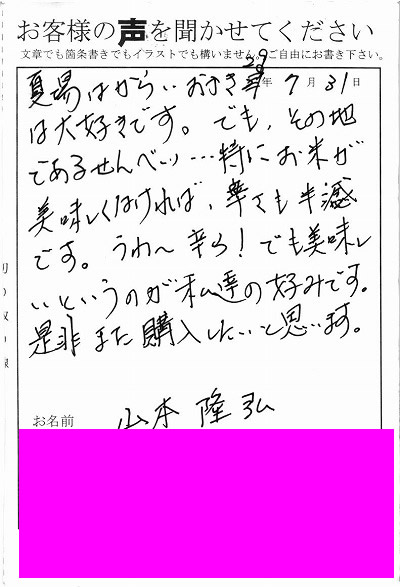 お客様の声を聞かせてください
文章でも箇条書きでもイラストでも構いません。ご自由にお書き下さい。
29年7月31日
夏場はからいおかき
は大好きです。でも、その地
であるせんべい…特にお米が
美味しくなければ、辛さも半減
です。うわ〜辛ら!でも美味し
いというのが私達の好みです。
是非また購入したいと思います。
お名前 山本隆弘